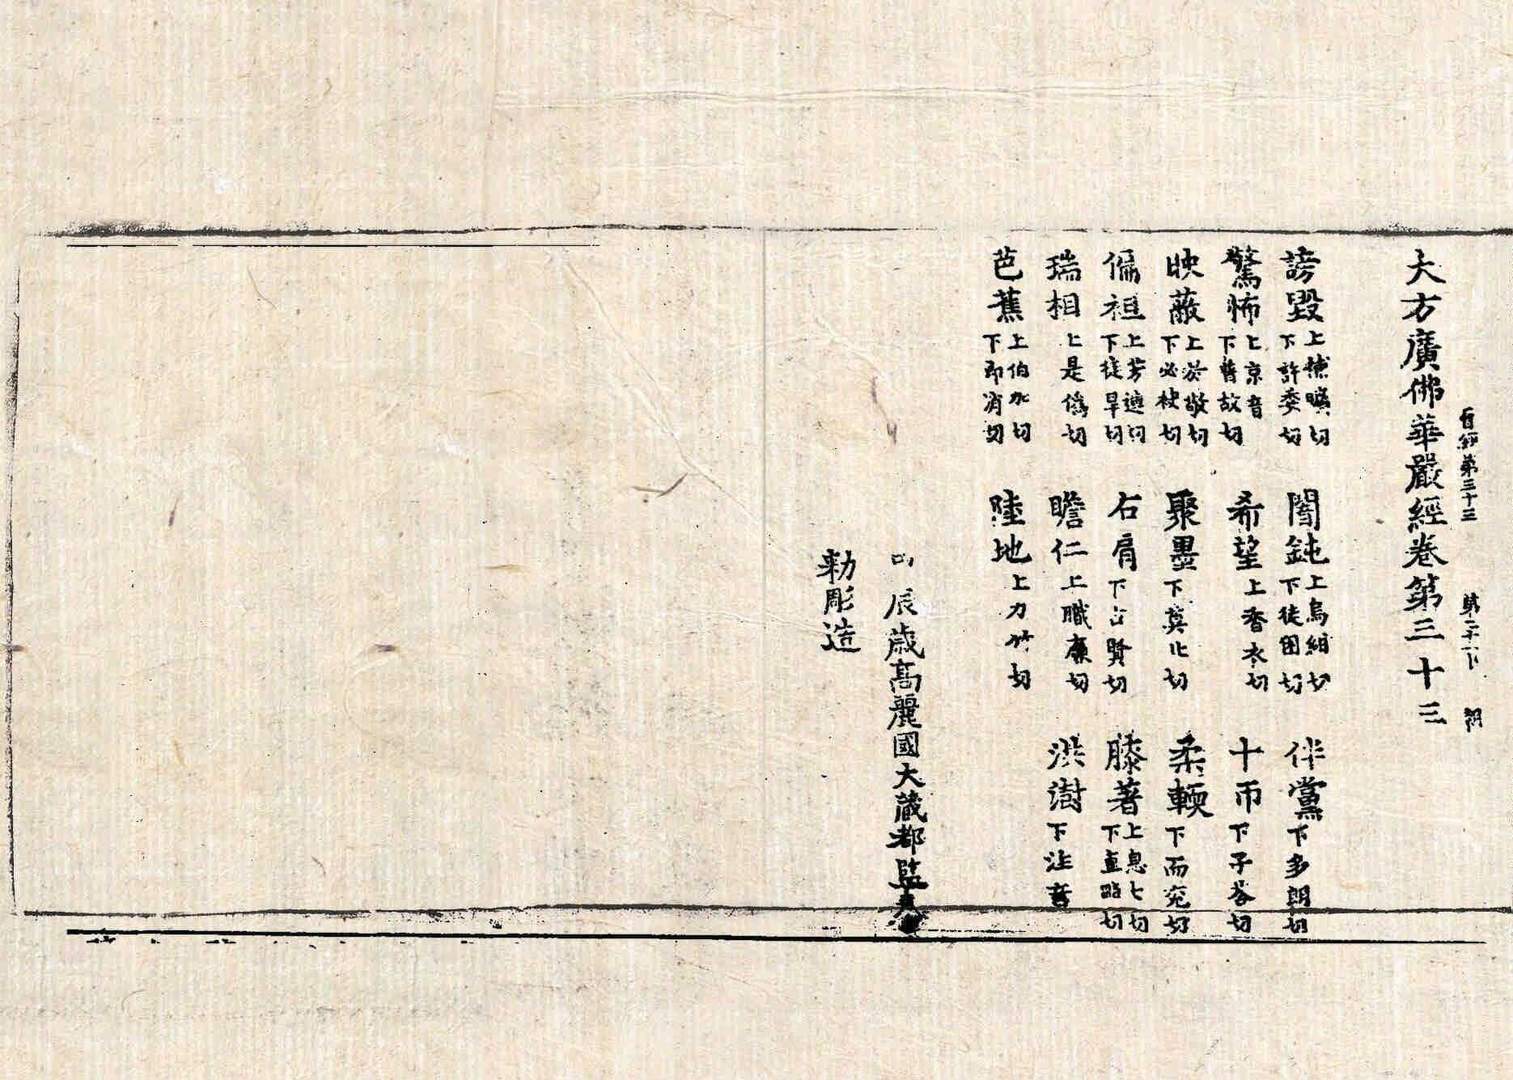 經第三十三
大方廣佛華嚴經卷第三十三
謗毀上補曠切下許委切 闇鈍上烏紺切下徒困切 伴黨下多朗切
驚怖上京音下普故切 希望上香衣切 十帀下子荅切
映蔽上於敬切下必袂切 聚墨下莫北切 柔輭下而兖切
偏袒上芳連切下徒旱切 右肩下古賢切 膝著上息七切下直略切
瑞相上是僞切 瞻仁上職廉切 洪澍下注音
芭蕉上伯加切下即消切 陸地上力竹切
辰歲高麗國大藏都監奉
勅彫造